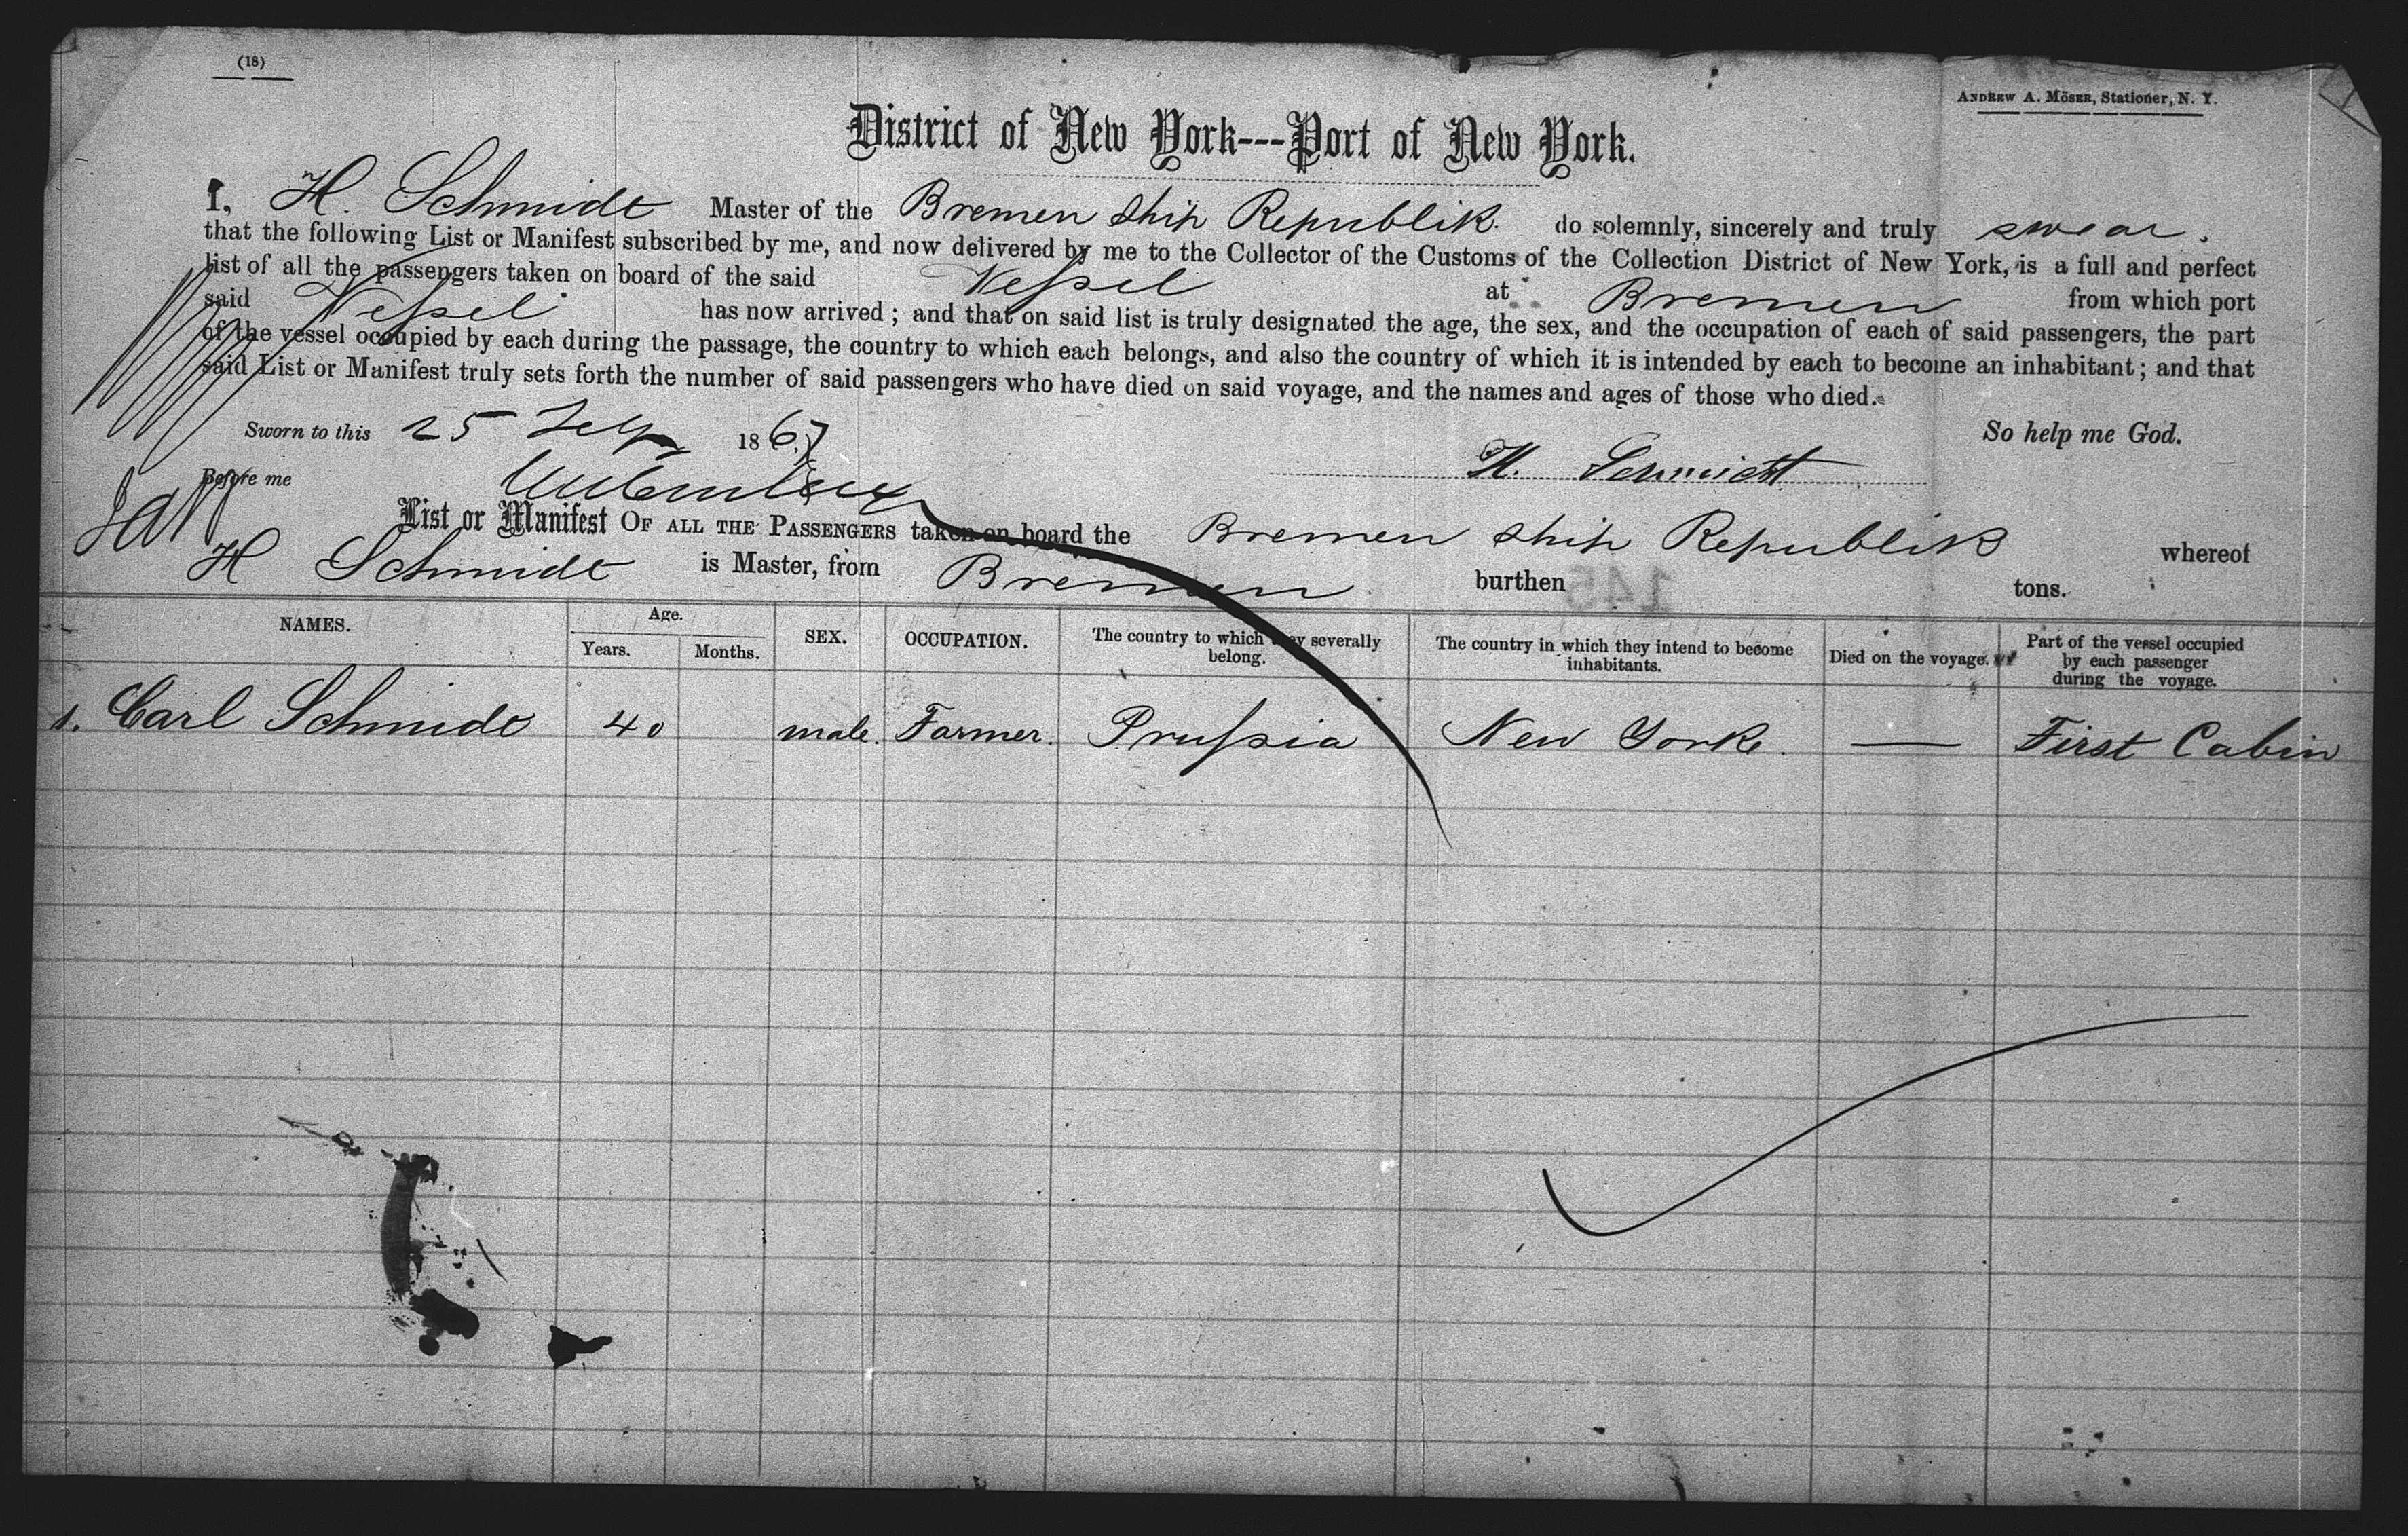 (18)
ANDREW A. MÖSER, Stationer, N. Y.
District of New York---Port of New York.
I, H. Schmidt Master of the Bremen ship Republik. do solemnly, sincerely and truly swear.
that the following List or Manifest subscribed by me, and now delivered by me to the Collector of the Customs of the Collection District of New York, is a full and perfect
list of all the passengers taken on board of the said Vessel at Bremen from which port
said Vessel has now arrived; and that on said list is truly designated the age, the sex, and the occupation of each of said passengers, the part
of the vessel occupied by each during the passage, the country to which each belongs, and also the country of which it is intended by each to become an inhabitant; and that
said List or Manifest truly sets forth the number of said passengers who have died on said voyage, and the names and ages of those who died.
So help me God.
Sworn to this 25 1867
H. Schmidt
Before me
List or Manifest OF ALL THE PASSENGERS taken on board the Bremen ship Republik whereof
H Schmidt is Master, from Bremen burthen tons.
145
NAMES. Age. Years. Months. SEX. OCCUPATION. The country to which they severally belong. The country in which they intend to become inhabitants. Died on the voyage. Part of the vessel occupied by each passenger during the voyage.
1. Carl Schmidt 40 male. Farmer. Prussia New York. — First Cabin